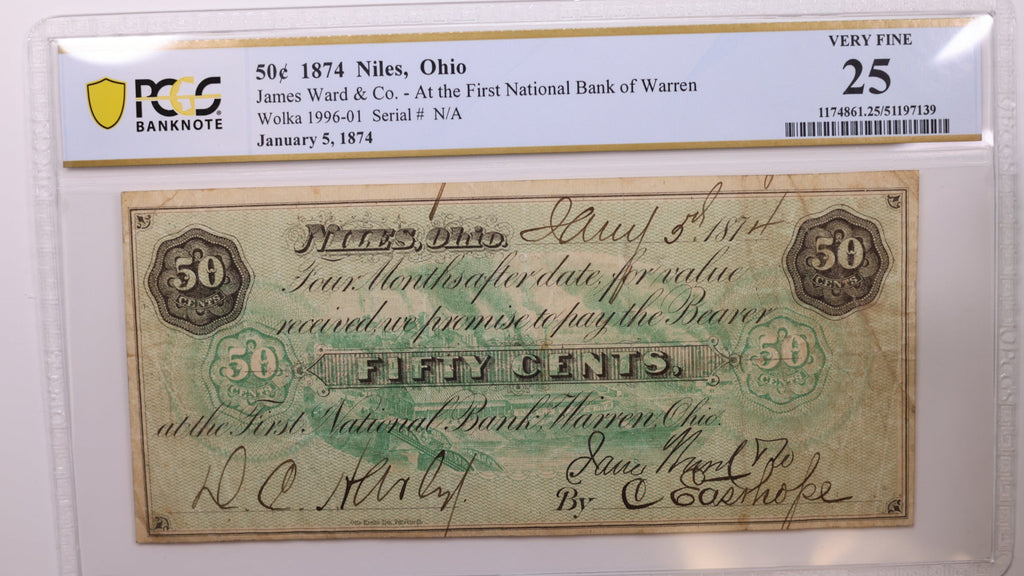 50¢ 1874 Niles, Ohio
James Ward & Co. - At the First National Bank of Warren
Wolka 1996-01 Serial # N/A
January 5, 1874
PCGS
BANKNOTE
VERY FINE
25
1174861.25/51197139
NILES, Ohio. Jany 5th 1874
50
CENTS
50
CENTS
Four Months after date, for value
received, we promise to pay the Bearer
50
CENTS
FIFTY CENTS.
50
CENTS
at the First National Bank, Warren, Ohio.
James Ward & Co
D. C.
By C Easthope